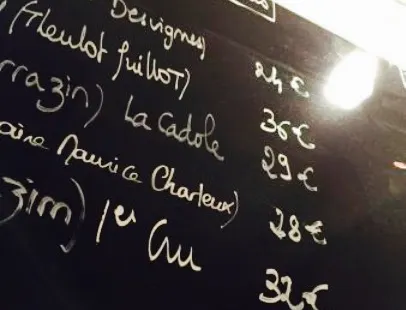 Desvignes) 24€
(Meulot Juillot) 36€
rrazin) La Cadole 29€
aine Maurice Charleux) 28€
zin) 1er Cru 32€